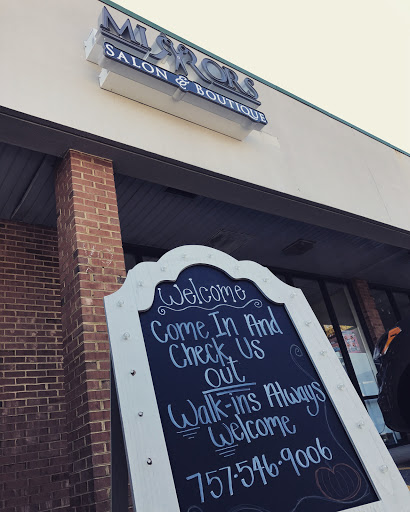 MIRRORS
SALON & BOUTIQUE
Welcome
Come In And
Check Us
out
Walk-ins Always
Welcome
757·546·9006